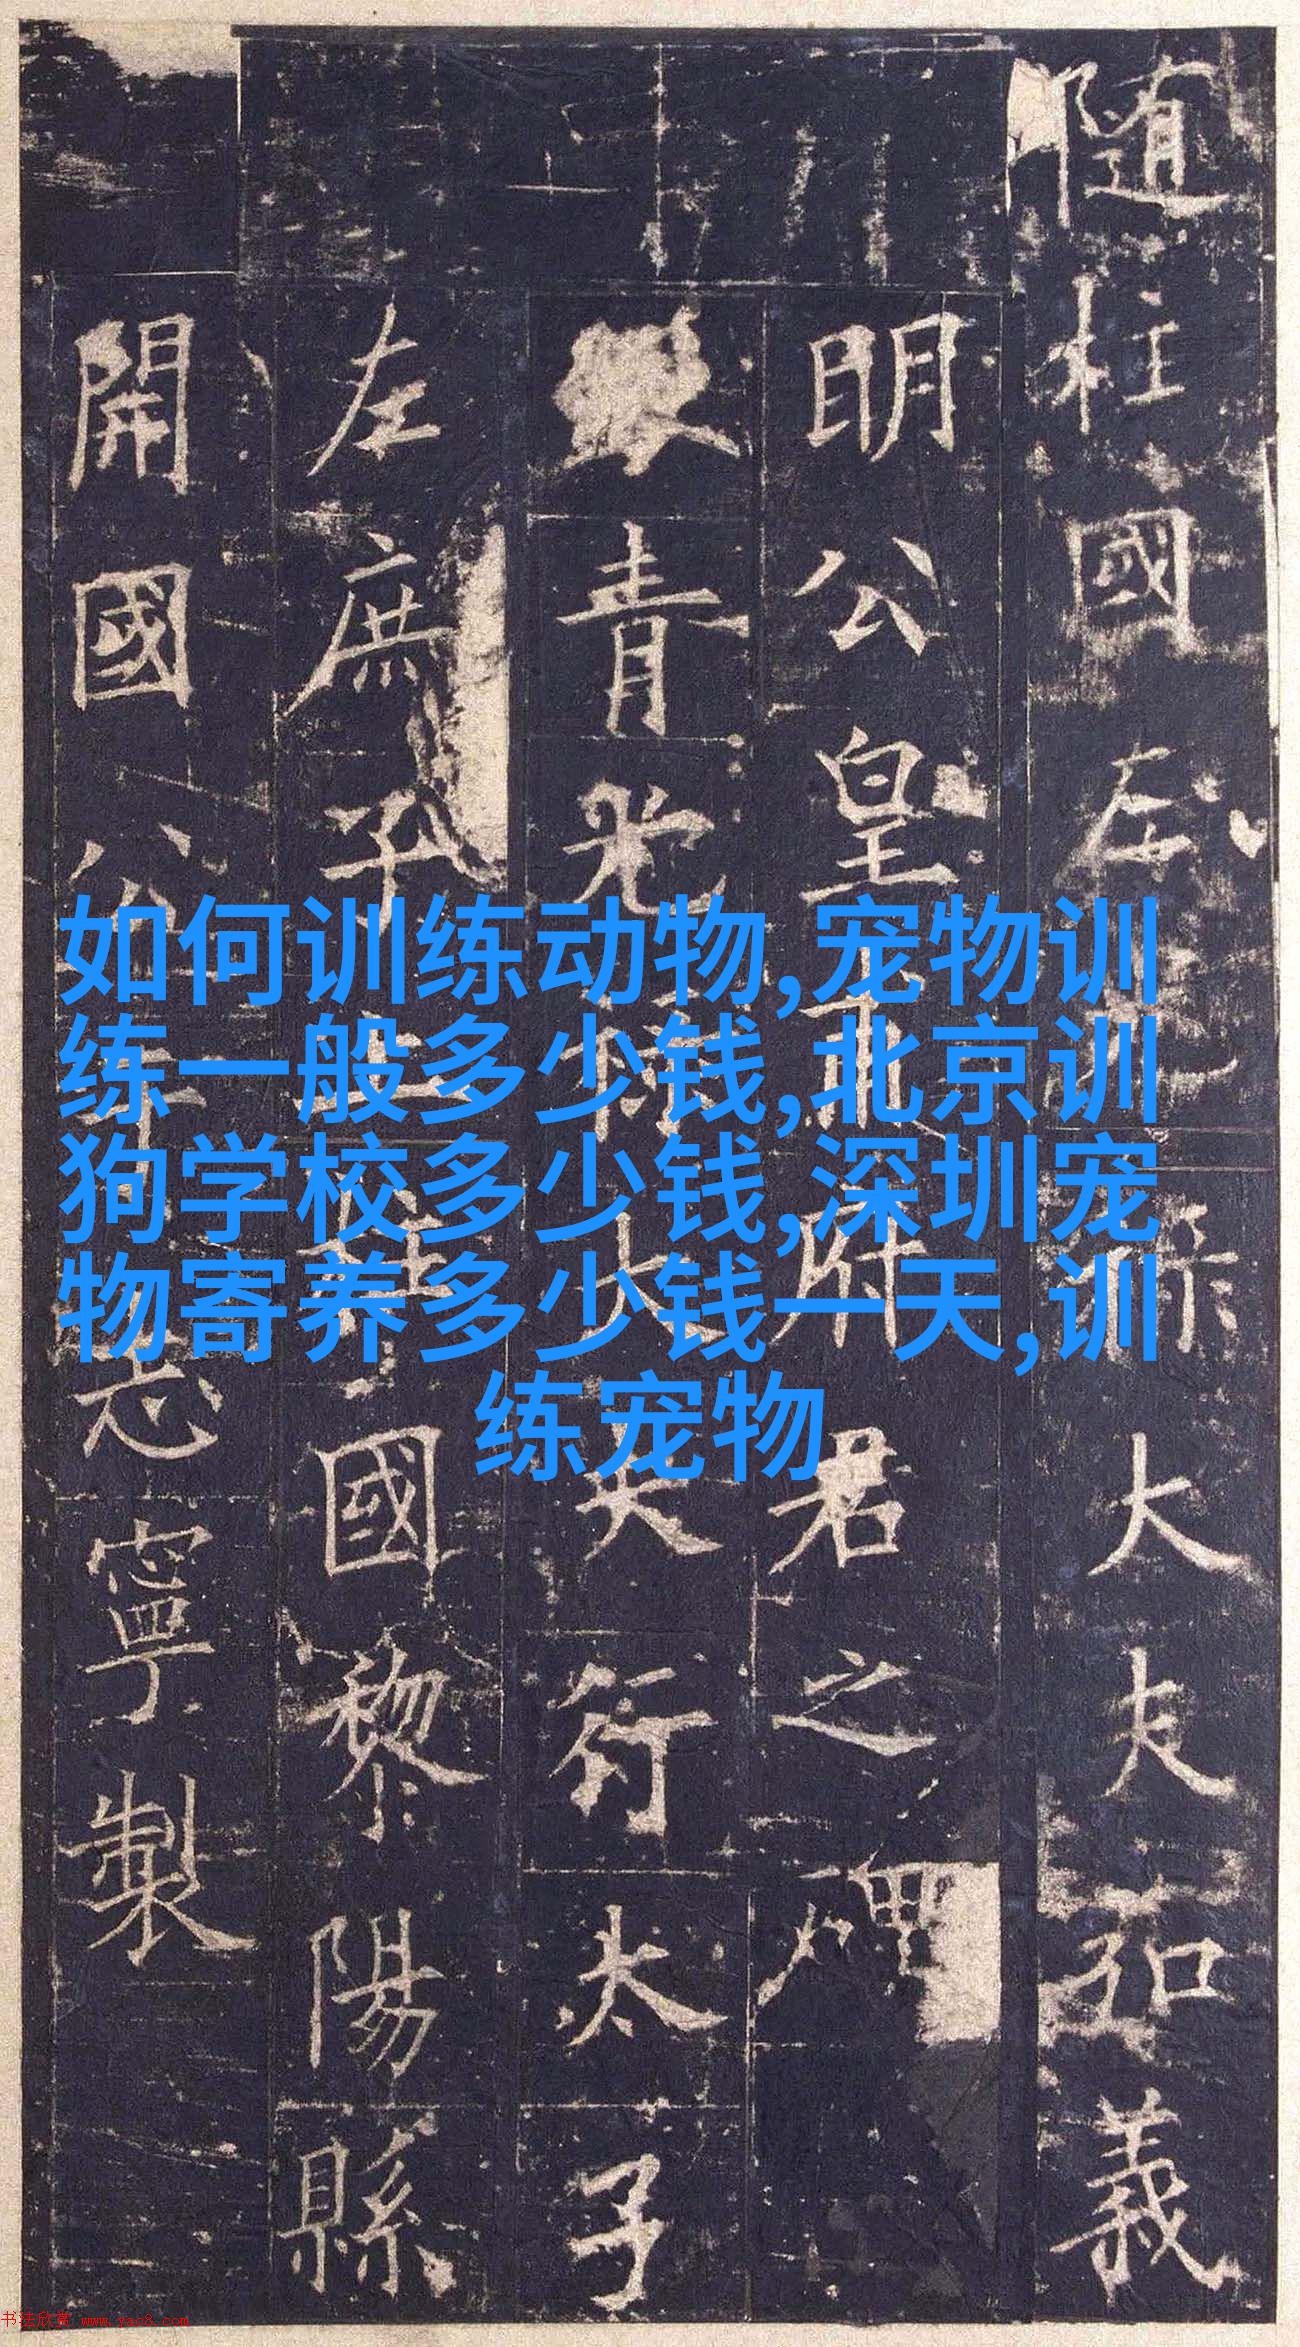 隨柱國左光祿大夫弘義
明公皇甫府君之碑
銀青光祿大夫行太子
左庶子上柱國黎陽縣
開國公于志寧製
如何训练动物,宠物训
练一般多少钱,北京训
狗学校多少钱,深圳宠
物寄养多少钱一天,训
练宠物
书法欣赏 www.yac8.com